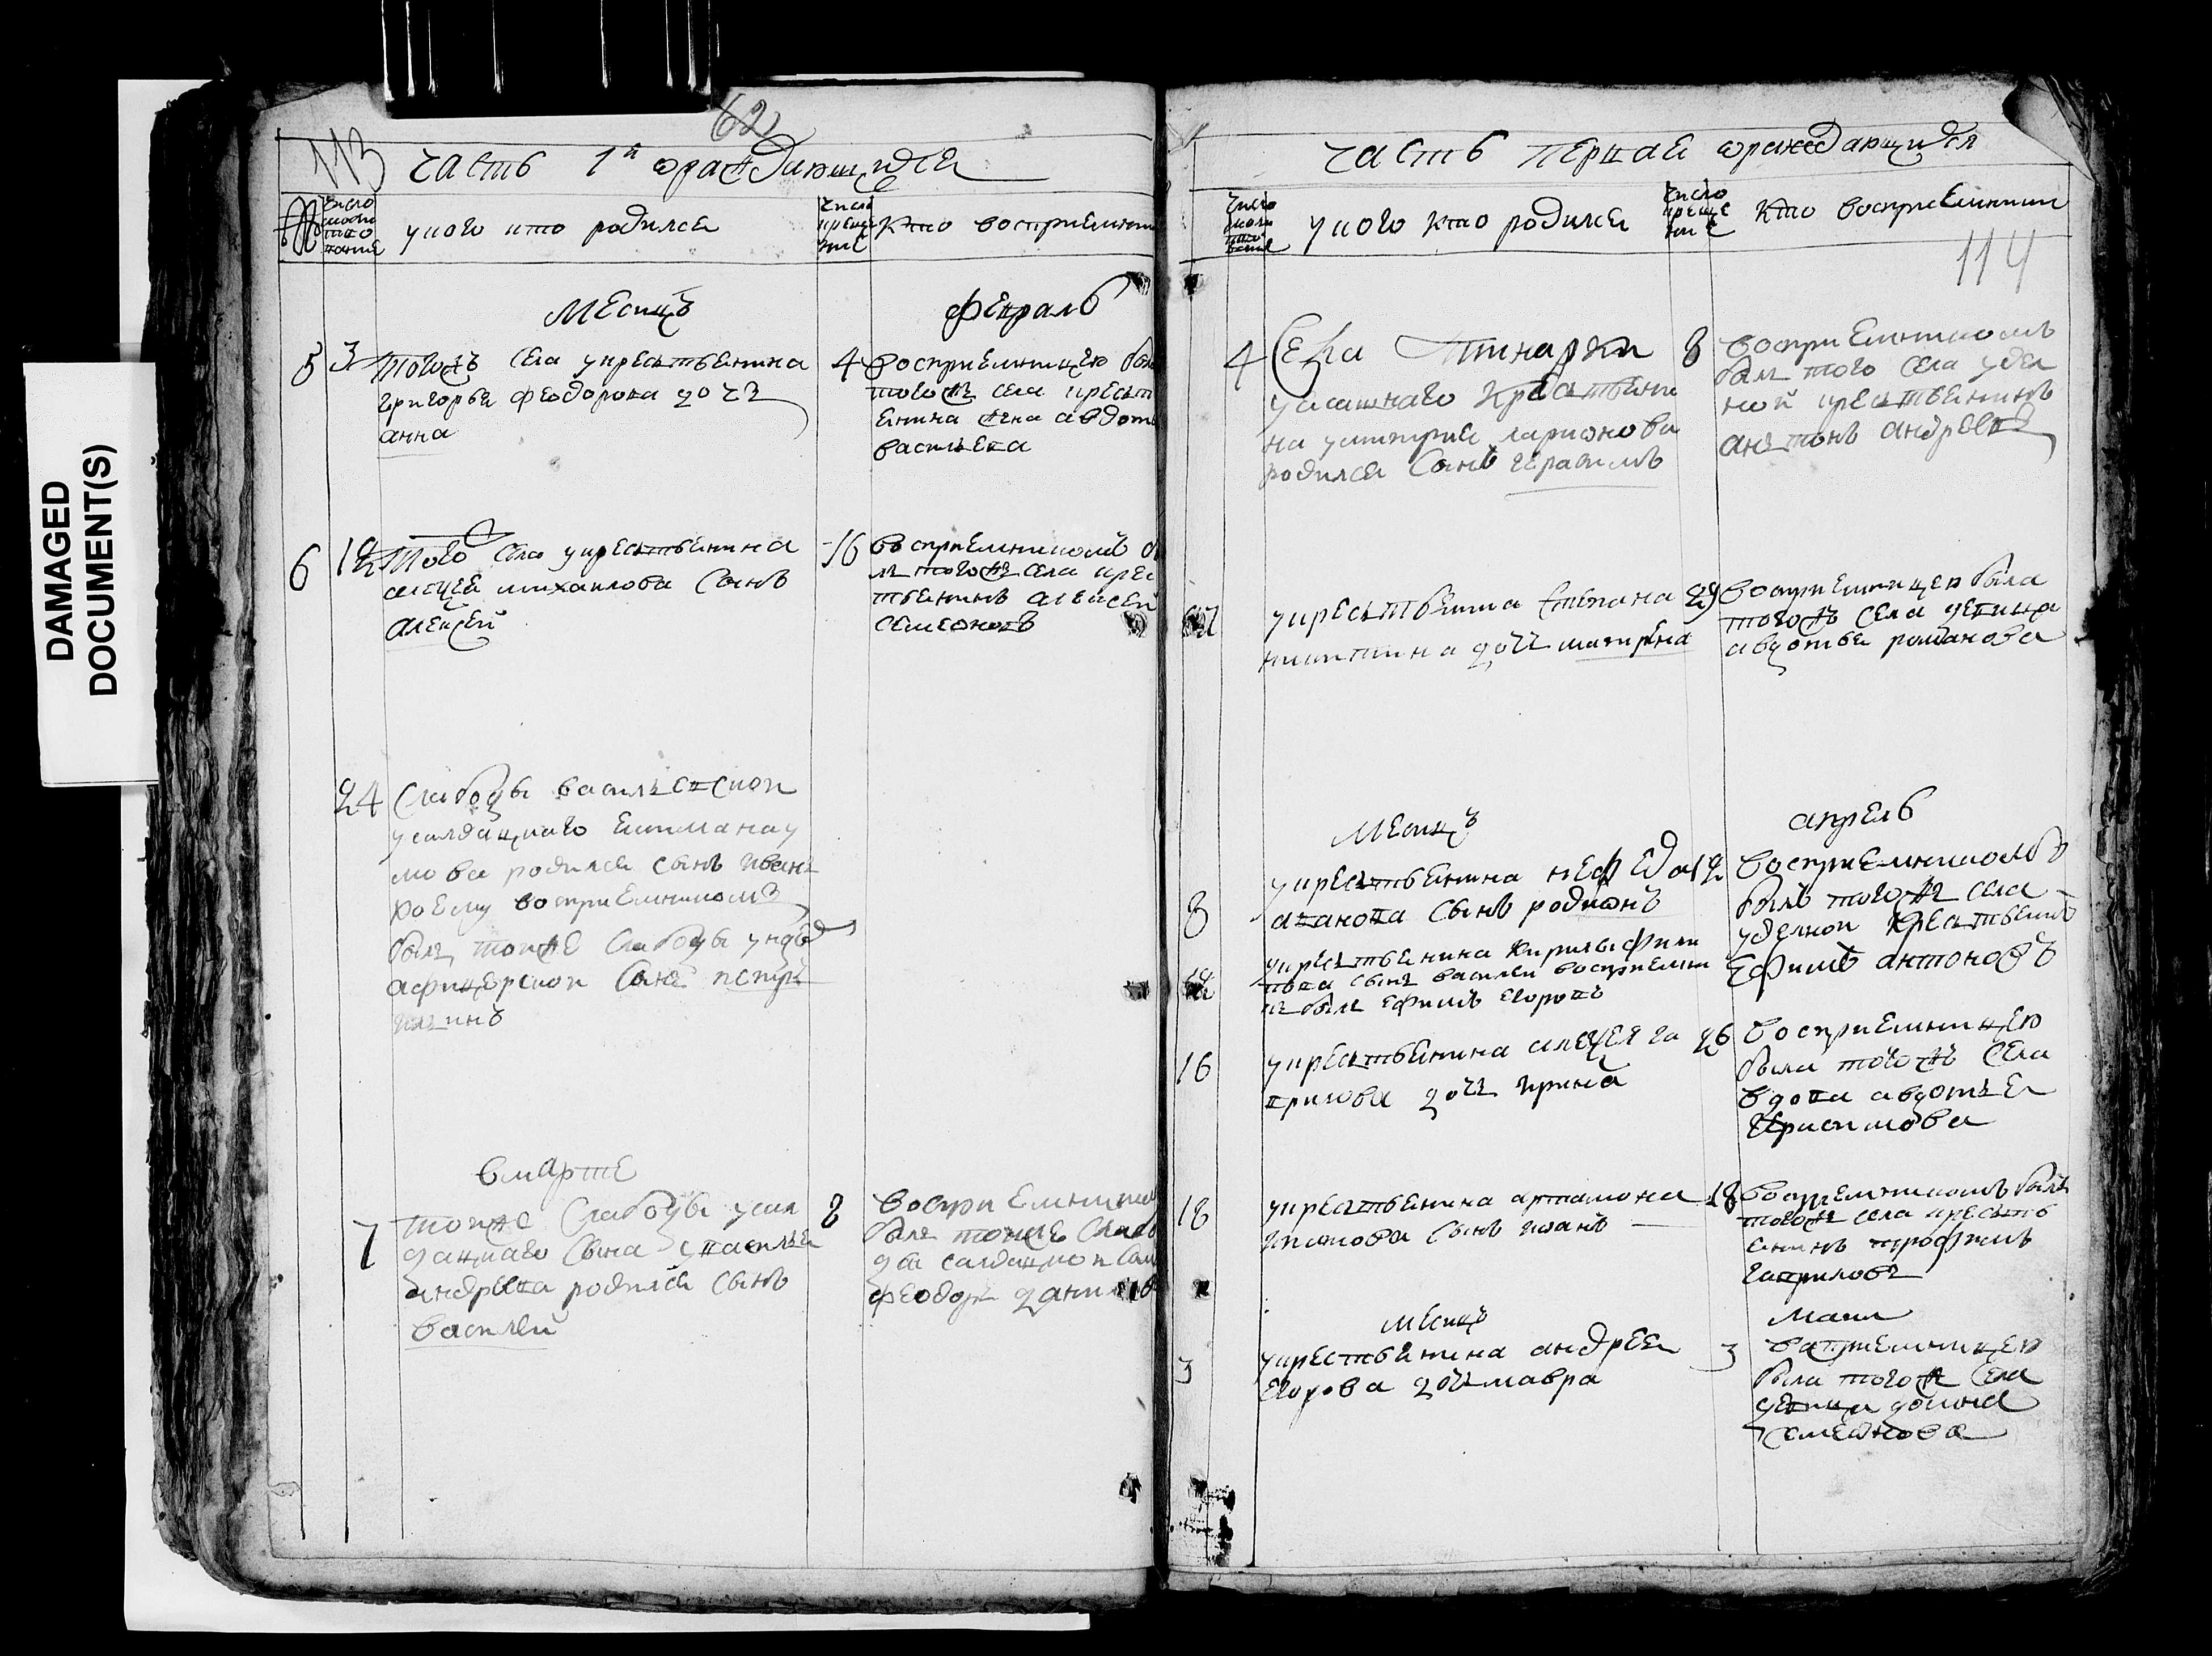 DAMAGED
DOCUMENT(S)
62
113
часть 1я ораждающихся
число
рожде
ния
у кого кто родился
число
креще
ния
кто восприемник
месяцъ февраль
5 3 тогожъ села у крестьянина
григорья феодорова дочь
анна
4 восприемницею была
тогожъ села крестья
енина жена авдотья
васильева
6 12 того села у крестьянина
алецея михаилова сынъ
алексей
16 восприемникомъ бы
лъ тогожъ села крес
тьенинъ алексей
семеоновъ
24 слабоды васильевской
у салдацкаго
родился сынъ иванъ
коему восприемникомъ
былъ тойже слабоды
афицерской сынъ петръ
ильинъ
в марте
7 тойже слабоды у сал
дацкаго сына у василья
андреева родился сынъ
василей
8 восприемником
былъ тойже слабо
ды салдацкой сын
феодоръ данилов
часть первая ораждающихся
число
рожде
ния
у кого кто родился
число
креще
ния
кто восприемникъ
114
4 села
у ясашнаго крестьени
на у митрия ларионова
родился сынъ герасимъ
8 восприемникомъ
былъ того села удел
ной крестьенинъ
антонъ андреевъ
у крестьенина степана
никитина дочь матрена
29 восприемницею была
тогожъ села девица
авдотья романова
месяцъ апрель
8 у крестьенина нефеда
азанова сынъ родионъ
12 восприемникомъ
былъ тогожъ села
уделной крестьенинъ
ефимъ антоновъ
у крестьенина кирилы фили
пова сынъ василей восприемни
къ былъ ефимъ егоровъ
16 у крестьенина алецея га
врилова дочь ирина
26 восприемницею
была тогожъ села
вдова авдотья
герасимова
18 у крестьенина артамона
сынъ иванъ
18 восприемникомъ былъ
тогожъ села кресть
енинъ трофимъ
гавриловъ
месяцъ маия
3 у крестьенина андреея
егорова дочь мавра
3 васприемницею
была тогожъ села
девица домна
семеонова